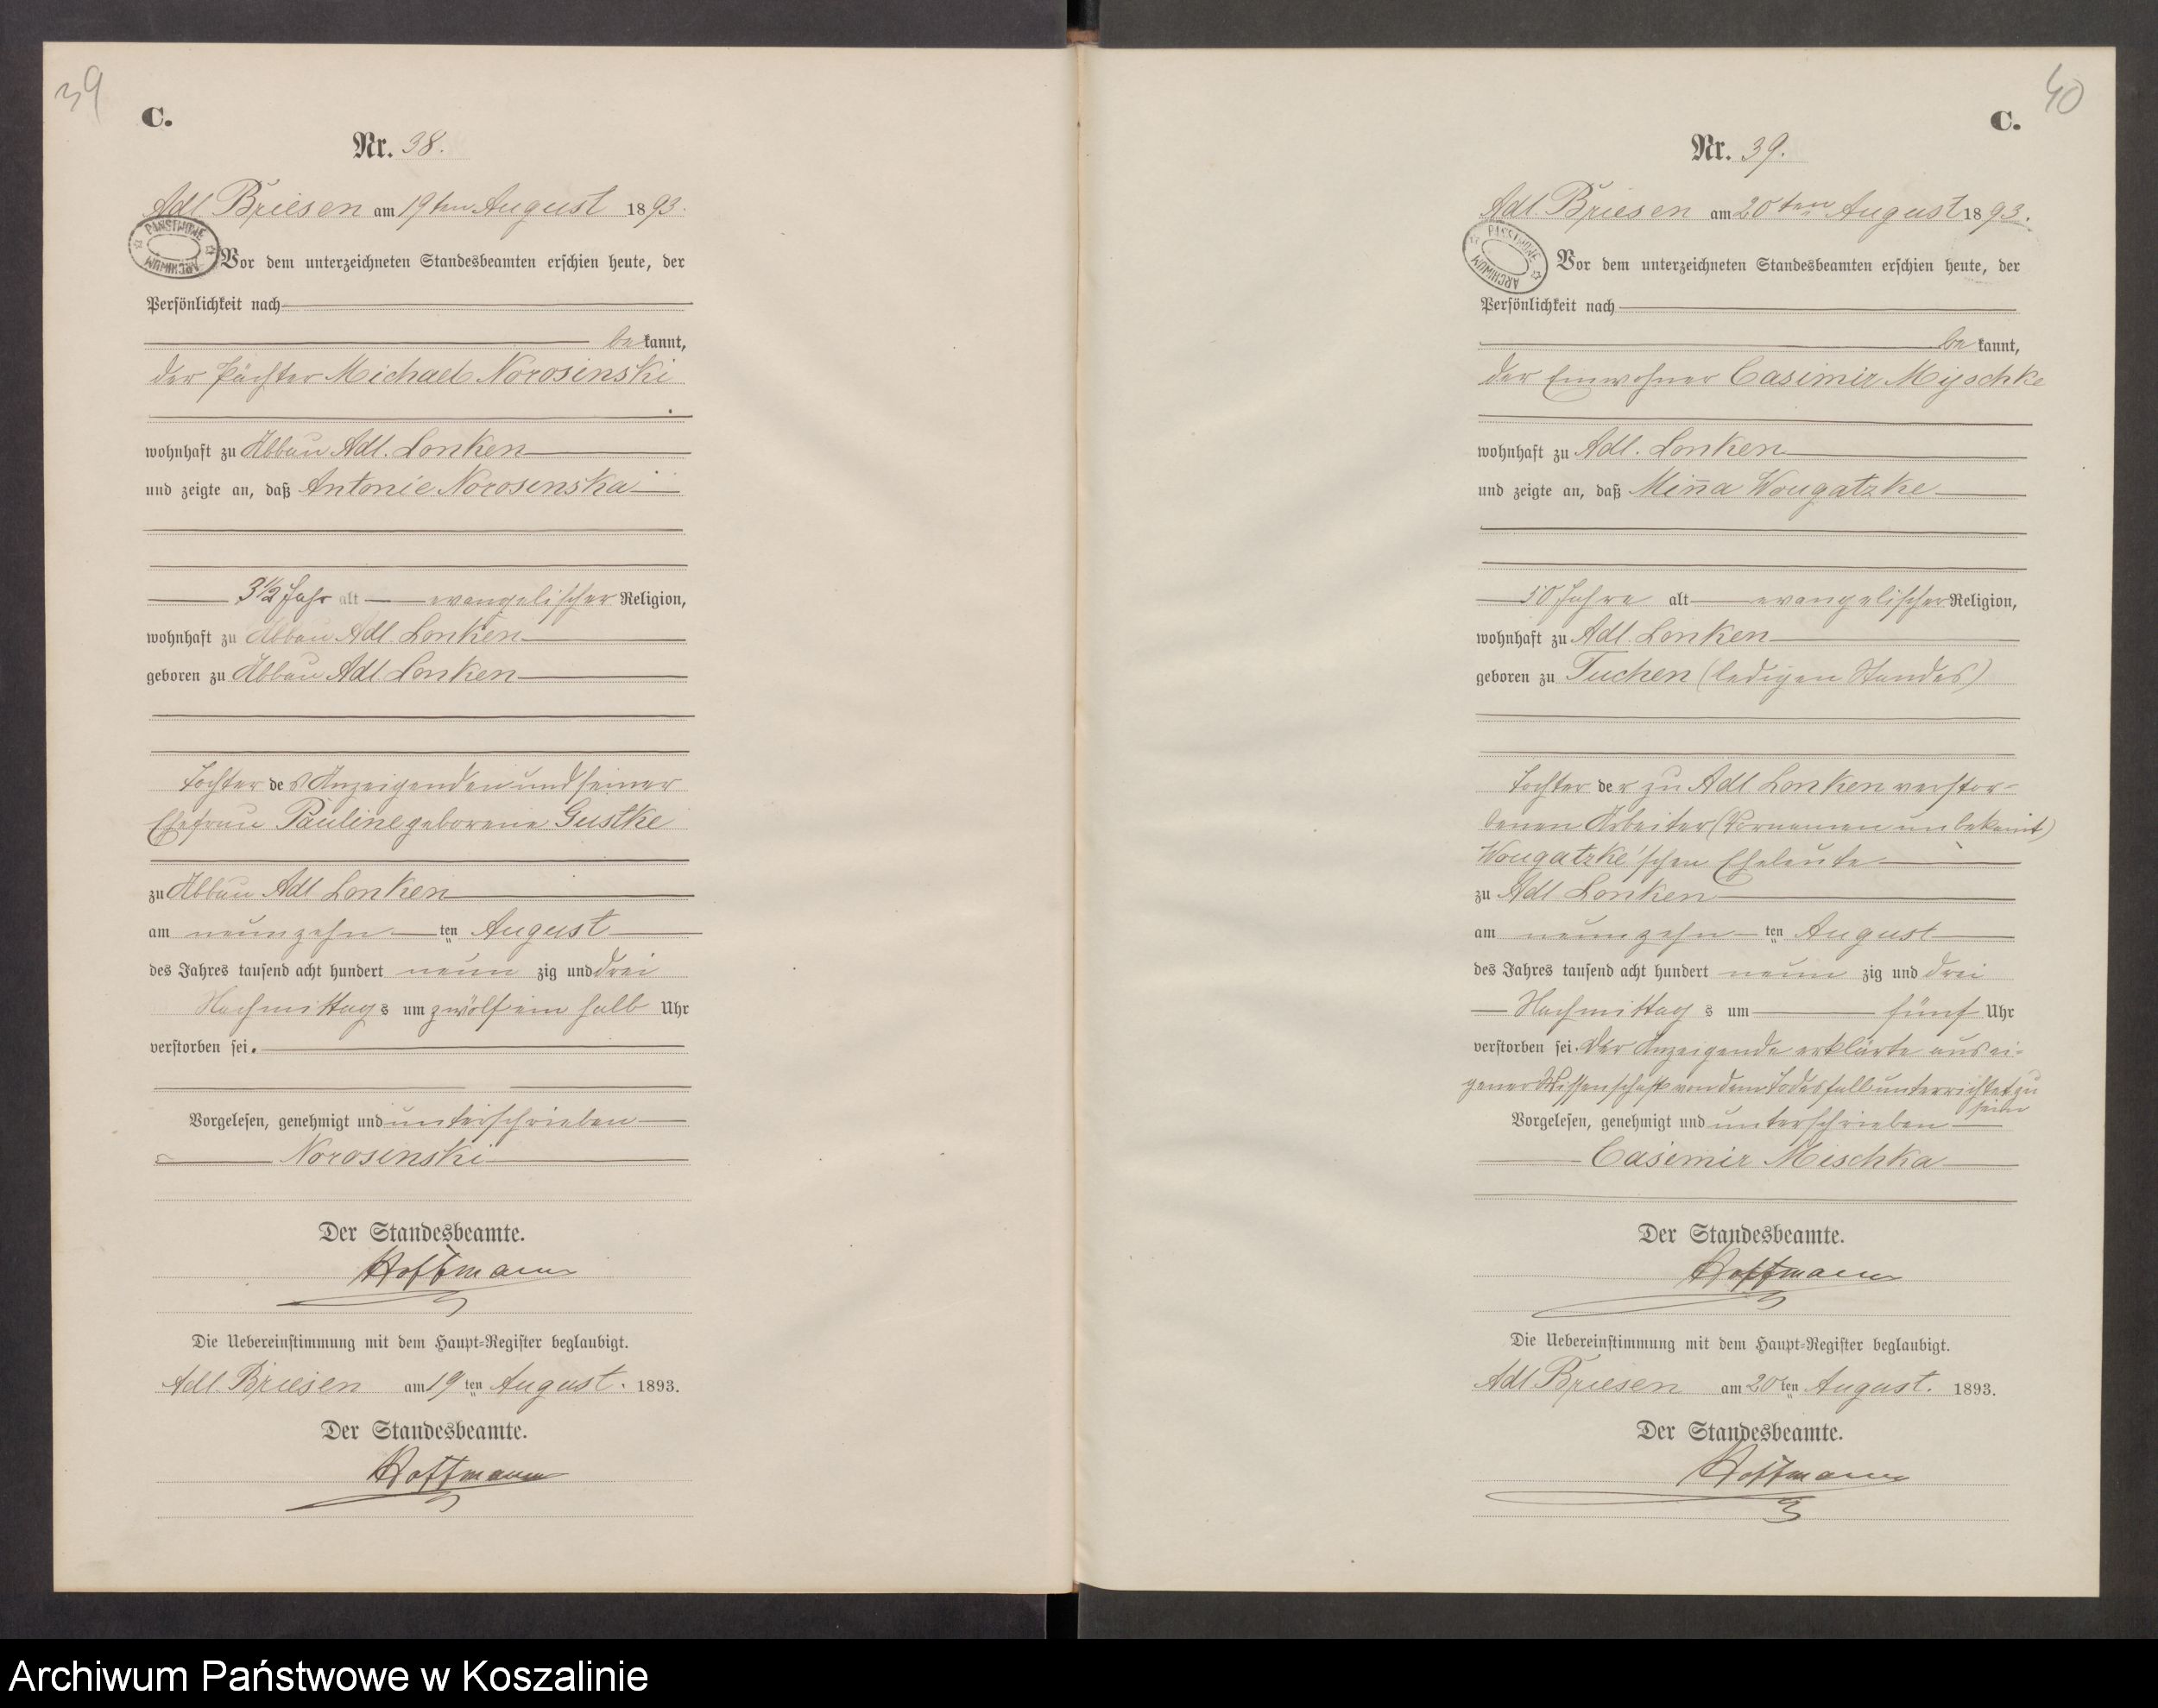 39
C.
Nr. 38.
Adl. Briesen am 19ten August 1893.
PAŃSTWOWE ARCHIWUM
Vor dem unterzeichneten Standesbeamten erschien heute, der
Persönlichkeit nach
bekannt,
der Pächter Michael Norosinski
wohnhaft zu Abbau Adl. Lonken
und zeigte an, daß Antonie Norosinska
3½ Jahr alt evangelischer Religion,
wohnhaft zu Abbau Adl. Lonken
geboren zu Abbau Adl Lonken
Tochter des Anzeigenden und seiner
Ehefrau Pauline geborene Gustke
zu Abbau Adl Lonken
am neunzehn ten August
des Jahres tausend acht hundert neun zig und drei
Nachmittags um zwölf ein halb Uhr
verstorben sei.
Vorgelesen, genehmigt und unterschrieben
Norosinski
Der Standesbeamte.
Hoffmann
Die Uebereinstimmung mit dem Haupt-Register beglaubigt.
Adl. Briesen am 19ten August. 1893.
Der Standesbeamte.
Hoffmann
40
C.
Nr. 39.
Adl. Briesen am 20ten August 1893.
PAŃSTWOWE ARCHIWUM
Vor dem unterzeichneten Standesbeamten erschien heute, der
Persönlichkeit nach
bekannt,
der Einwohner Casimir Myschke
wohnhaft zu Adl. Lonken
und zeigte an, daß Mina Wougatzke
50 Jahre alt evangelischer Religion,
wohnhaft zu Adl. Lonken
geboren zu Tuchen (ledigen Standes)
Tochter der zu Adl Lonken verstor-
benen Arbeiter (Vornamen unbekannt)
Wougatzke'schen Eheleute
zu Adl Lonken
am neunzehn ten August
des Jahres tausend acht hundert neun zig und drei
Nachmittags um fünf Uhr
verstorben sei. Der Anzeigende erklärte aus ei-
gener Wissenschaft von dem Todesfall unterrichtet zu
sein
Vorgelesen, genehmigt und unterschrieben
Casimir Mischka
Der Standesbeamte.
Hoffmann
Die Uebereinstimmung mit dem Haupt-Register beglaubigt.
Adl Briesen am 20ten August. 1893.
Der Standesbeamte.
Hoffmann
Archiwum Państwowe w Koszalinie